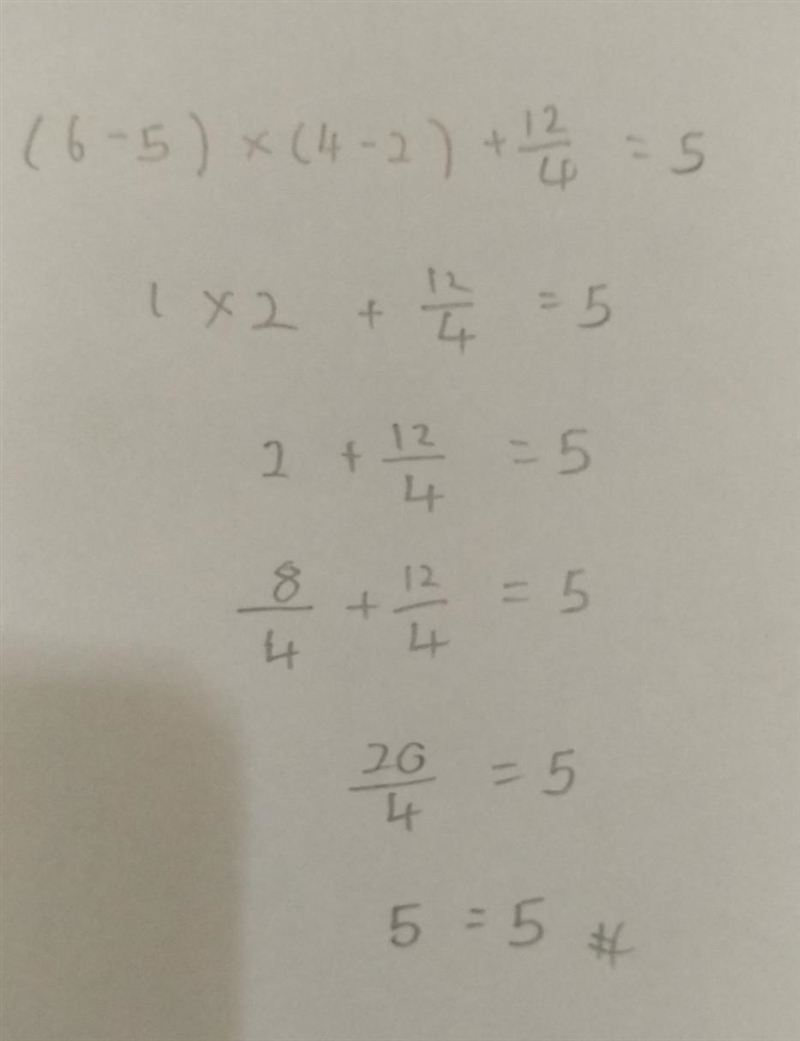 (6-5) × (4-2) + 12/4 = 5
1 × 2 + 12/4 = 5
2 + 12/4 = 5
8/4 + 12/4 = 5
20/4 = 5
5 = 5 #